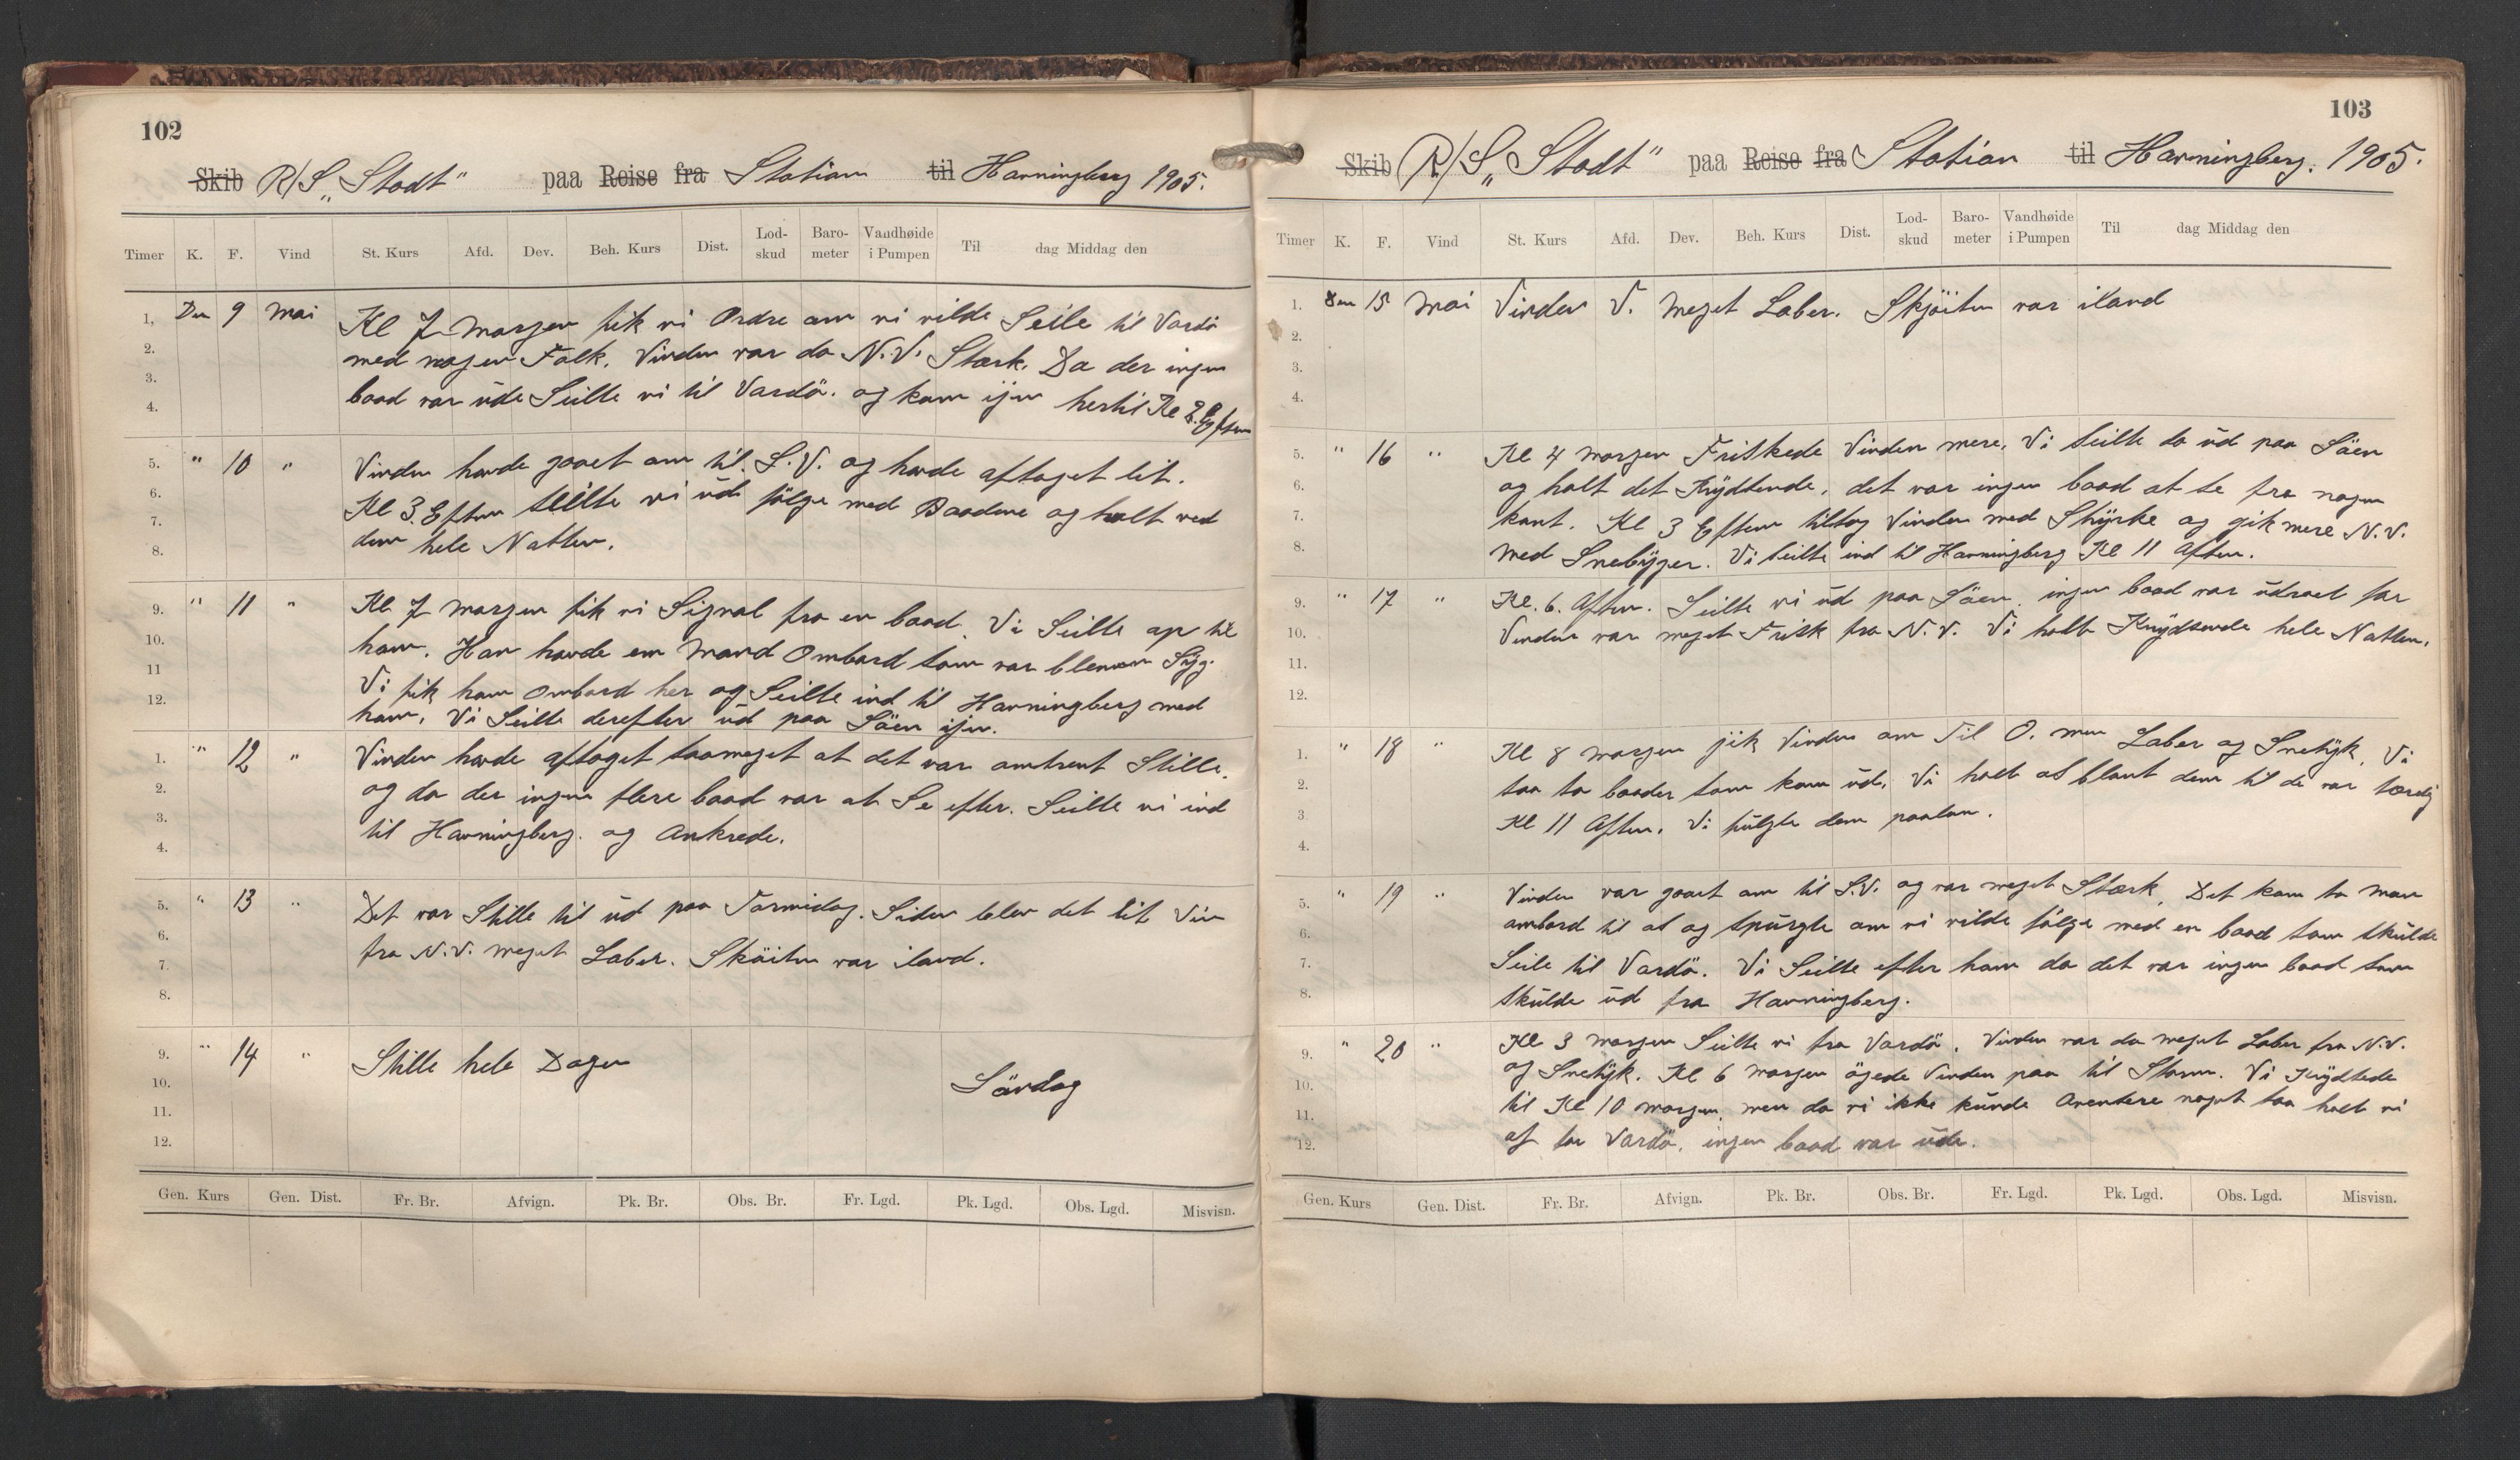 102
Skib R/S „Stadt“ paa Reise fra Station til Havningberg 1905.
Timer K. F. Vind St. Kurs Afd. Dev. Beh. Kurs Dist. Lod-skud Baro-meter Vandhøide i Pumpen Til dag Middag den
1, Den 9 Mai Kl 7 Morgen fik vi Ordre om vi vilde Seile til Vardö
2. med nogen Folk. Vinden var da N.V. Stærk. Da der ingen
3. baad var ude Seilte vi til Vardö. og kom ijen hertil Kl 8. Eftem
4.
5. " 10 " Vinden havde gaaet om til S.V. og havde aftaget lit.
6. Kl 3. Eftem seilte vi ud fölge med Baadene og holt ved
7. dem hele Natten.
8.
9. " 11 " Kl 7 Morgen fik vi Signal fra en baad. Vi Seilte op til
10. ham. Han havde en Mand Ombord som var bleven Syg.
11 Vi fik ham ombord her og Seilte ind til Havningberg med
12. ham. Vi Seilte derefter ud paa Söen ijen.
1. " 12 " Vinden havde aftaget saameget at det var omtrent Stille.
2. og da der ingen flere baad var at Se efter. Seilte vi ind
3. til Havningberg. og Ankrede.
4.
5. " 13 " Det var Stille til ud paa Formidag. Siden blev det lit Vin
6. fra N.V. meget Laber. Sköiten var iland.
7.
8.
9. " 14 " Stille hele Dagen
10. Söndag
11.
12.
Gen. Kurs Gen. Dist. Fr. Br. Afvign. Pk. Br. Obs. Br. Fr. Lgd. Pk. Lgd. Obs. Lgd. Misvisn.
103
Skib R/S „Stadt“ paa Reise fra Station til Havningberg. 1905.
Timer K. F. Vind St. Kurs Afd. Dev. Beh. Kurs Dist. Lod-skud Baro-meter Vandhøide i Pumpen Til dag Middag den
1. Den 15 Mai Vinden V. meget Laber. Skjöiten var iland
2.
3.
4.
5. " 16 " Kl 4 morgen Friskede Vinden mere. Vi seilte da ud paa Söen
6. og holt det Krydsende. det var ingen baad at se fra nogen
7. kant. Kl 3 Eftem tiltog Vinden med Styrke og gik mere N.V.
8. med Snebyger. Vi seilte ind til Havningberg Kl 11 Aften.
9. " 17 " Kl. 6. Aften. Seilte vi ud paa Söen. ingen baad var udroet for
10. Vinden var meget Frisk fra N.V. Vi holt Krydsende hele Natten.
11.
12.
1. " 18 " Kl 8 morgen jik Vinden om Til O. men Laber og Snetyk. Vi
2. saa to baader som kom ud. Vi holt os blant dem til de var færdig
3 Kl 11 Aften. Vi fulgte dem paaland.
4.
5. " 19 " Vinden var gaaet om til S.V. og var meget Stærk. Det kom to man
6. ombord til os og spurgte om vi vilde fölge med en baad som skulde
7. Seile til Vardö. Vi Seilte efter ham da det var ingen baad som
8. skulde ud fra Havningberg.
9. " 20 " Kl 3 morgen Seilte vi fra Vardö. Vinden var da meget Laber fra N.V.
10. og Snetyk. Kl 6 morgen ögede Vinden paa til Storm. Vi Krydsede
11. til Kl 10 morgen. men da vi ikke kunde Aventere noget saa holt vi
12. af for Vardö. ingen baad var ude.
Gen. Kurs Gen. Dist. Fr. Br. Afvign. Pk. Br. Obs. Br. Fr. Lgd. Pk. Lgd. Obs. Lgd. Misvisn.